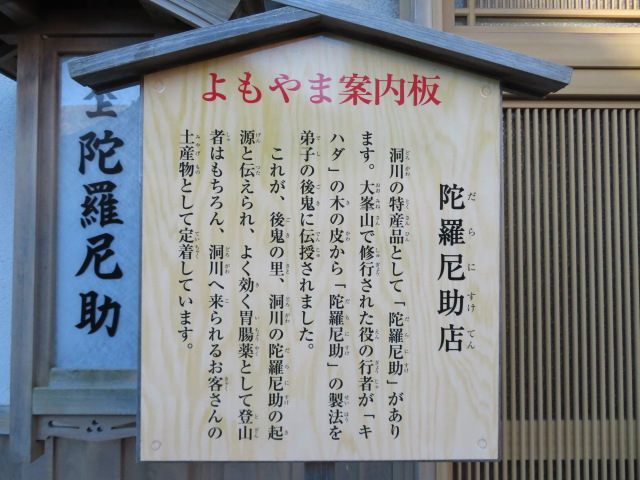 よもやま案内板
陀羅尼助店
洞川の特産品として「陀羅尼助」があり
ます。大峯山で修行された役の行者が「キ
ハダ」の木の皮から「陀羅尼助」の製法を
弟子の後鬼に伝授されました。
これが、後鬼の里、洞川の陀羅尼助の起
源と伝えられ、よく効く胃腸薬として登山
者はもちろん、洞川へ来られるお客さんの
土産物として定着しています。
陀羅尼助